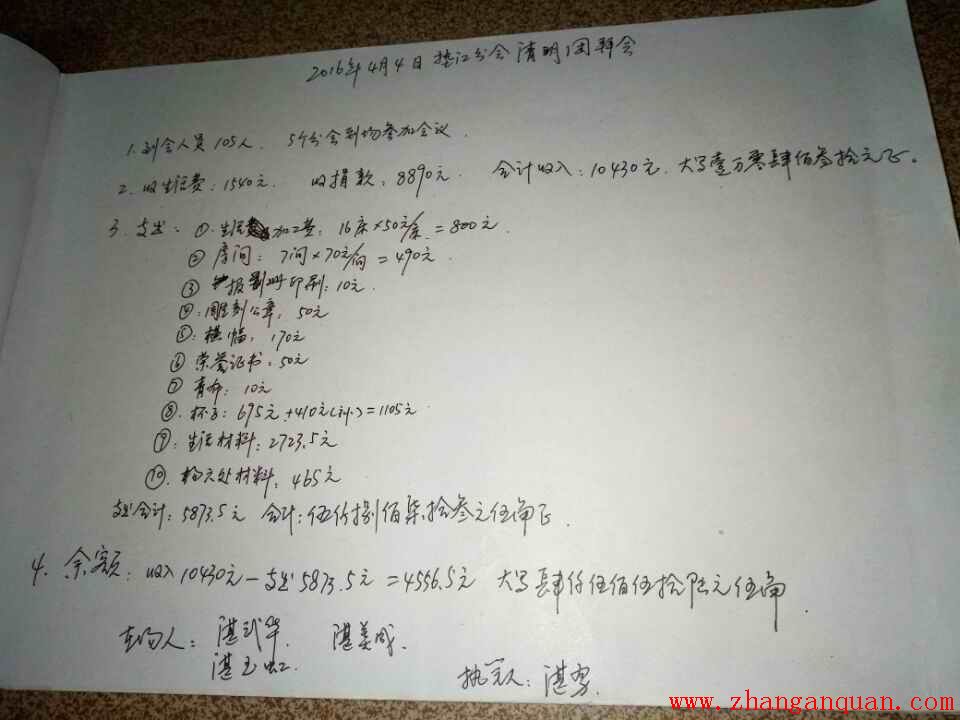 2016年4月4日垫江分会清明团拜会
1. 到会人员105人. 5个分会到场参加会议.
2. 收生活费: 1540元. 收捐款: 8890元. 合计收入: 10430元. 大写壹万零肆佰叁拾元正。
3. 支出: ①. 生活加工费: 16席×50元/席=800元.
② 房间: 7间×70元/间=490元.
③ 印刷: 10元.
④: 雕刻公章: 50元
⑤: 横幅: 170元
⑥ 荣誉证书: 50元
⑦ 10元
⑧. 杯子: 695元+410元=1105元
⑨: 生活材料: 2723.5元
⑩. 材料: 465元
支出合计: 5873.5元 合计: 伍仟捌佰柒拾叁元伍角正.
4. 余额: 收入10430元-支出5873.5元=4556.5元 大写肆仟伍佰伍拾陆元伍角.
在场人: 谌武华. 谌美成.
谌玉虹.
执笔人: 谌勇.
www.zhanganquan.com